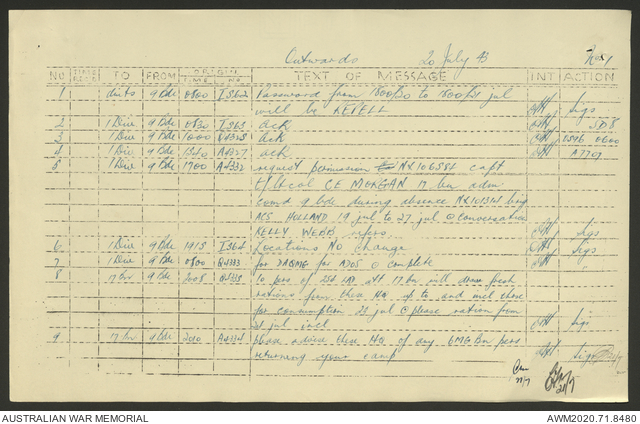 Outwards 20 July 43 No 1
NO TIME RECD TO FROM ORIGIN TIME NO. TEXT OF MESSAGE INT ACTION
1 units 9 Bde 0800 I562 Password from 1800/20 to 1800/21 jul
will be REPELL Sigs
2 1 Div 9 Bde 0830 I563 ack
3 1 Div 9 Bde 1000 ack
4 1 Div 9 Bde 1340 ack A7707
5 1 Div 9 Bde 1700 A4332 request permission NX106584 capt
T/Lt col CE MORGAN 17 bn adm
comd 9 bde during absence NX101314 brig
ACS HOLLAND 19 jul to 27 jul @ conversation
KELLY WEBB refers Sigs
6 1 Div 9 Bde 1915 I564 Locations NO change Sigs
7 1 Div 9 Bde 0800 Q4333 for DABMG for A705 @ complete
8 17 bn 9 Bde 2008 Q4333 10 pers of att 17 bn will draw fresh
rations from these HQ up to and incl those
for consumption 21 jul @ please ration from
21 jul incl Sigs
9 17 bn 9 Bde 2010 A4334 please advise these HQ of any 6MG Bn pers
returning your camp Sigs
AUSTRALIAN WAR MEMORIAL AWM2020.71.8480